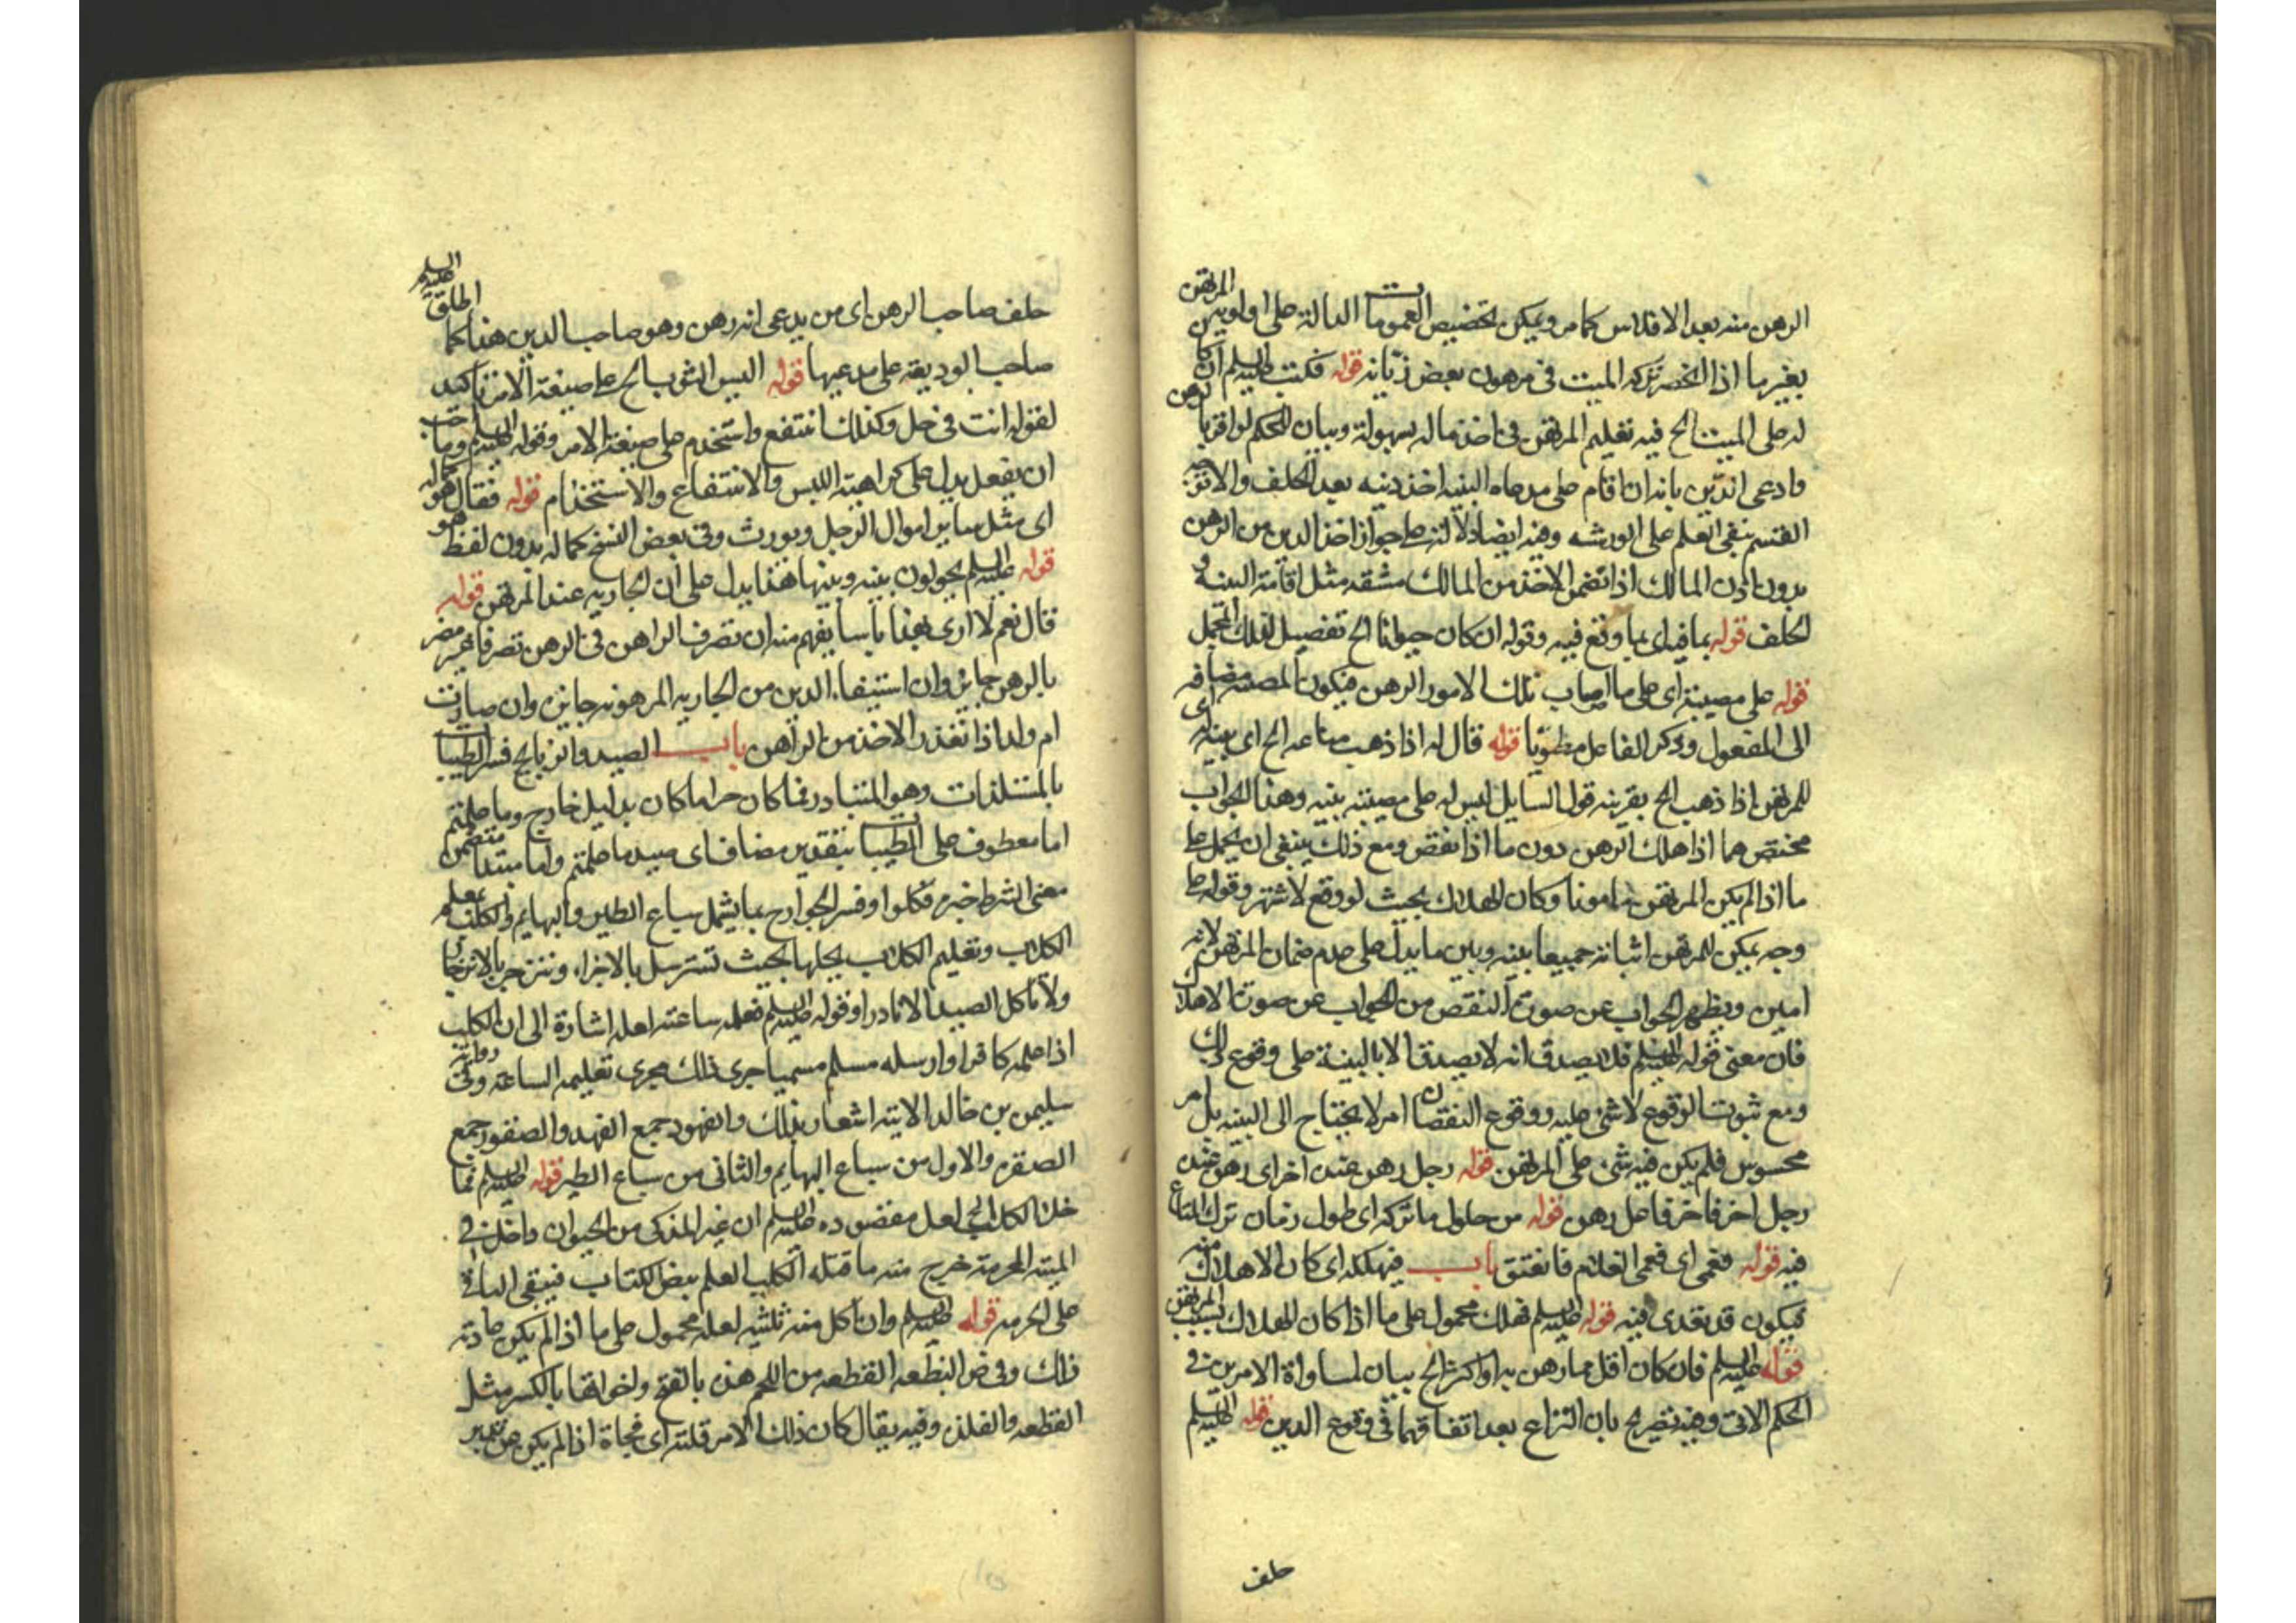 الرهن منه بعد الافلاس كما مر ويمكن تخصيص العمومات الدالة على اولوية المرتهن
بغير ما اذا انحصر تركه الميت فى مرهون بعض ديانه قوله فكتب عليه السلم ان كان
له على الميت الخ فيه تعليم المرتهن فى اخذ ماله بسهولة وبيان الحكم لو اقر بالرهن
وادعى الدين بانه ان اقام على مدعاه البينه اخذ دينه بعد الحلف والا
القسم بنفى العلم على الورثه وفيه ايضا دلالة على جواز اخذ الدين من الرهن
بدون اذن المالك اذا تضمن الاخذ من المالك مشقه مثل اقامة البينه و
الحلف قوله بما فيه اى بما وقع فيه وقوله ان كان حيوانا الخ تفصيل لذلك المجمل
قوله على مصيبته اى على ما اصاب تلك الامور الرهن فيكون المصيبه مضافه
الى المفعول وذكر الفاعل مطويا قوله قال له اذا ذهب متاعه الخ اى
للمرتهن اذا ذهب الخ بقرينه قول السايل ليس له على مصيبته بينه وهذا الجواب
مختص بما اذا هلك الرهن دون ما اذا نقص ومع ذلك ينبغى ان يحمل على
ما اذا لم يكن المرتهن مامونا وكان الهلاك بحيث لو وقع لاشتهر وقوله على
وجه يمكن للمرتهن اثباته جميعا بينه وبين ما يدل على عدم ضمان المرتهن لانه
امين ويظهر الجواب عن صورة النقص من الجواب عن صورة الاهلاك
فان معنى قوله عليه السلم فلا يصدق انه لا يصدق الا بالبينة على وقوع ذلك
ومع ثبوت الوقوع لا شئ عليه ووقوع النقصان امر لا يحتاج الى البينه بل امر
محسوس فلم يكن فيه شئ على المرتهن قوله رجل رهن عند اخر اى رهن عنده
رجل اخر فاخر فاعل رهن قوله من حلول ما تركه اى طول زمان ترك المتاع
فيه قوله فعمى اى فعمى الغلام فانعتق باب فيهلكه اى كان الاهلاك منه
فيكون قد تعدى فيه قوله عليه السلم فهلك محمول على ما اذا كان الهلاك بسبب المرتهن
قوله عليه السلم فان كان اقل مما رهن به او اكثر الخ بيان لمساواة الامرين فى
الحكم الاتى وفيه تصريح بان النزاع بعد اتفاقهما فى وقوع الدين قوله عليه السلم
حلف
حلف صاحب الرهن اى من يدعى انه رهن وهو صاحب الدين هنا كما اطلق عليه السلم
صاحب الوديعة على مدعيها قوله البس الثوب الخ على صيغة الامر تاكيد
لقوله انت فى حل وكذلك انتفع واستخدم على صيغة الامر وقوله عليه السلم وما احب
ان يفعل يدل على كراهية اللبس والانتفاع والاستخدام قوله فقال هو كماله
اى مثل ساير اموال الرجل ويورث وفى بعض النسخ كماله بدون لفظ هو
قوله عليه السلم يحولون بينه وبينها هذا يدل على ان الجاريه عند المرتهن قوله
قال نعم لا ارى بهذا باسا يفهم منه ان تصرف الراهن فى الرهن تصرفا غير مضر
بالرهن جايز وان استيفاء الدين من الجاريه المرهونه جايز وان صارت
ام ولد اذا تعذر الاخذ من الراهن باب الصيد والذبايح فسر الطيبات
بالمستلذات وهو المتبادر فما كان حراما كان بدليل خارج وما علمتم
اما معطوف على الطيبات بتقدير مضاف اى صيد ما علمتم واما مبتدا متضمن
معنى الشرط خبره فكلوا وفسر الجوارح بما يشمل سباع الطير والبهايم والمكلف بمعلم
الكلاب وتعليم الكلاب بجعلها بحيث تسترسل بالاغراء وتنزجر بالانزجار
ولا تاكل الصيد الا نادرا وقوله عليه السلم فعلمه ساعته لعله اشارة الى ان الكلب
اذا علمه كافر او ارسله مسلم مسميا جرى ذلك مجرى تعليمه الساعة وفى رواية
سليمن بن خالد الاتيه اشعار بذلك والفهود جمع الفهد والصقور جمع
الصقر والاول من سباع البهايم والثانى من سباع الطير قوله عليه السلم فما
خلا الكلاب الخ لعل مقصوده عليه السلم ان غير المذكى من الحيوان داخل فى
الميته المحرمة خرج منه ما قتله الكلب المعلم بنص الكتاب فيبقى الباقى
على الحرمه قوله عليه السلم وان اكل منه ثلثيه لعله محمول على ما اذا لم يكن عادته
ذلك وفى ض البضعه القطعه من اللحم هذه بالفتح واخواتها بالكسر مثل
القطعه والفلذه وفيه يقال كان ذلك الامر فلتة اى فجاة اذا لم يكن عن تدبر